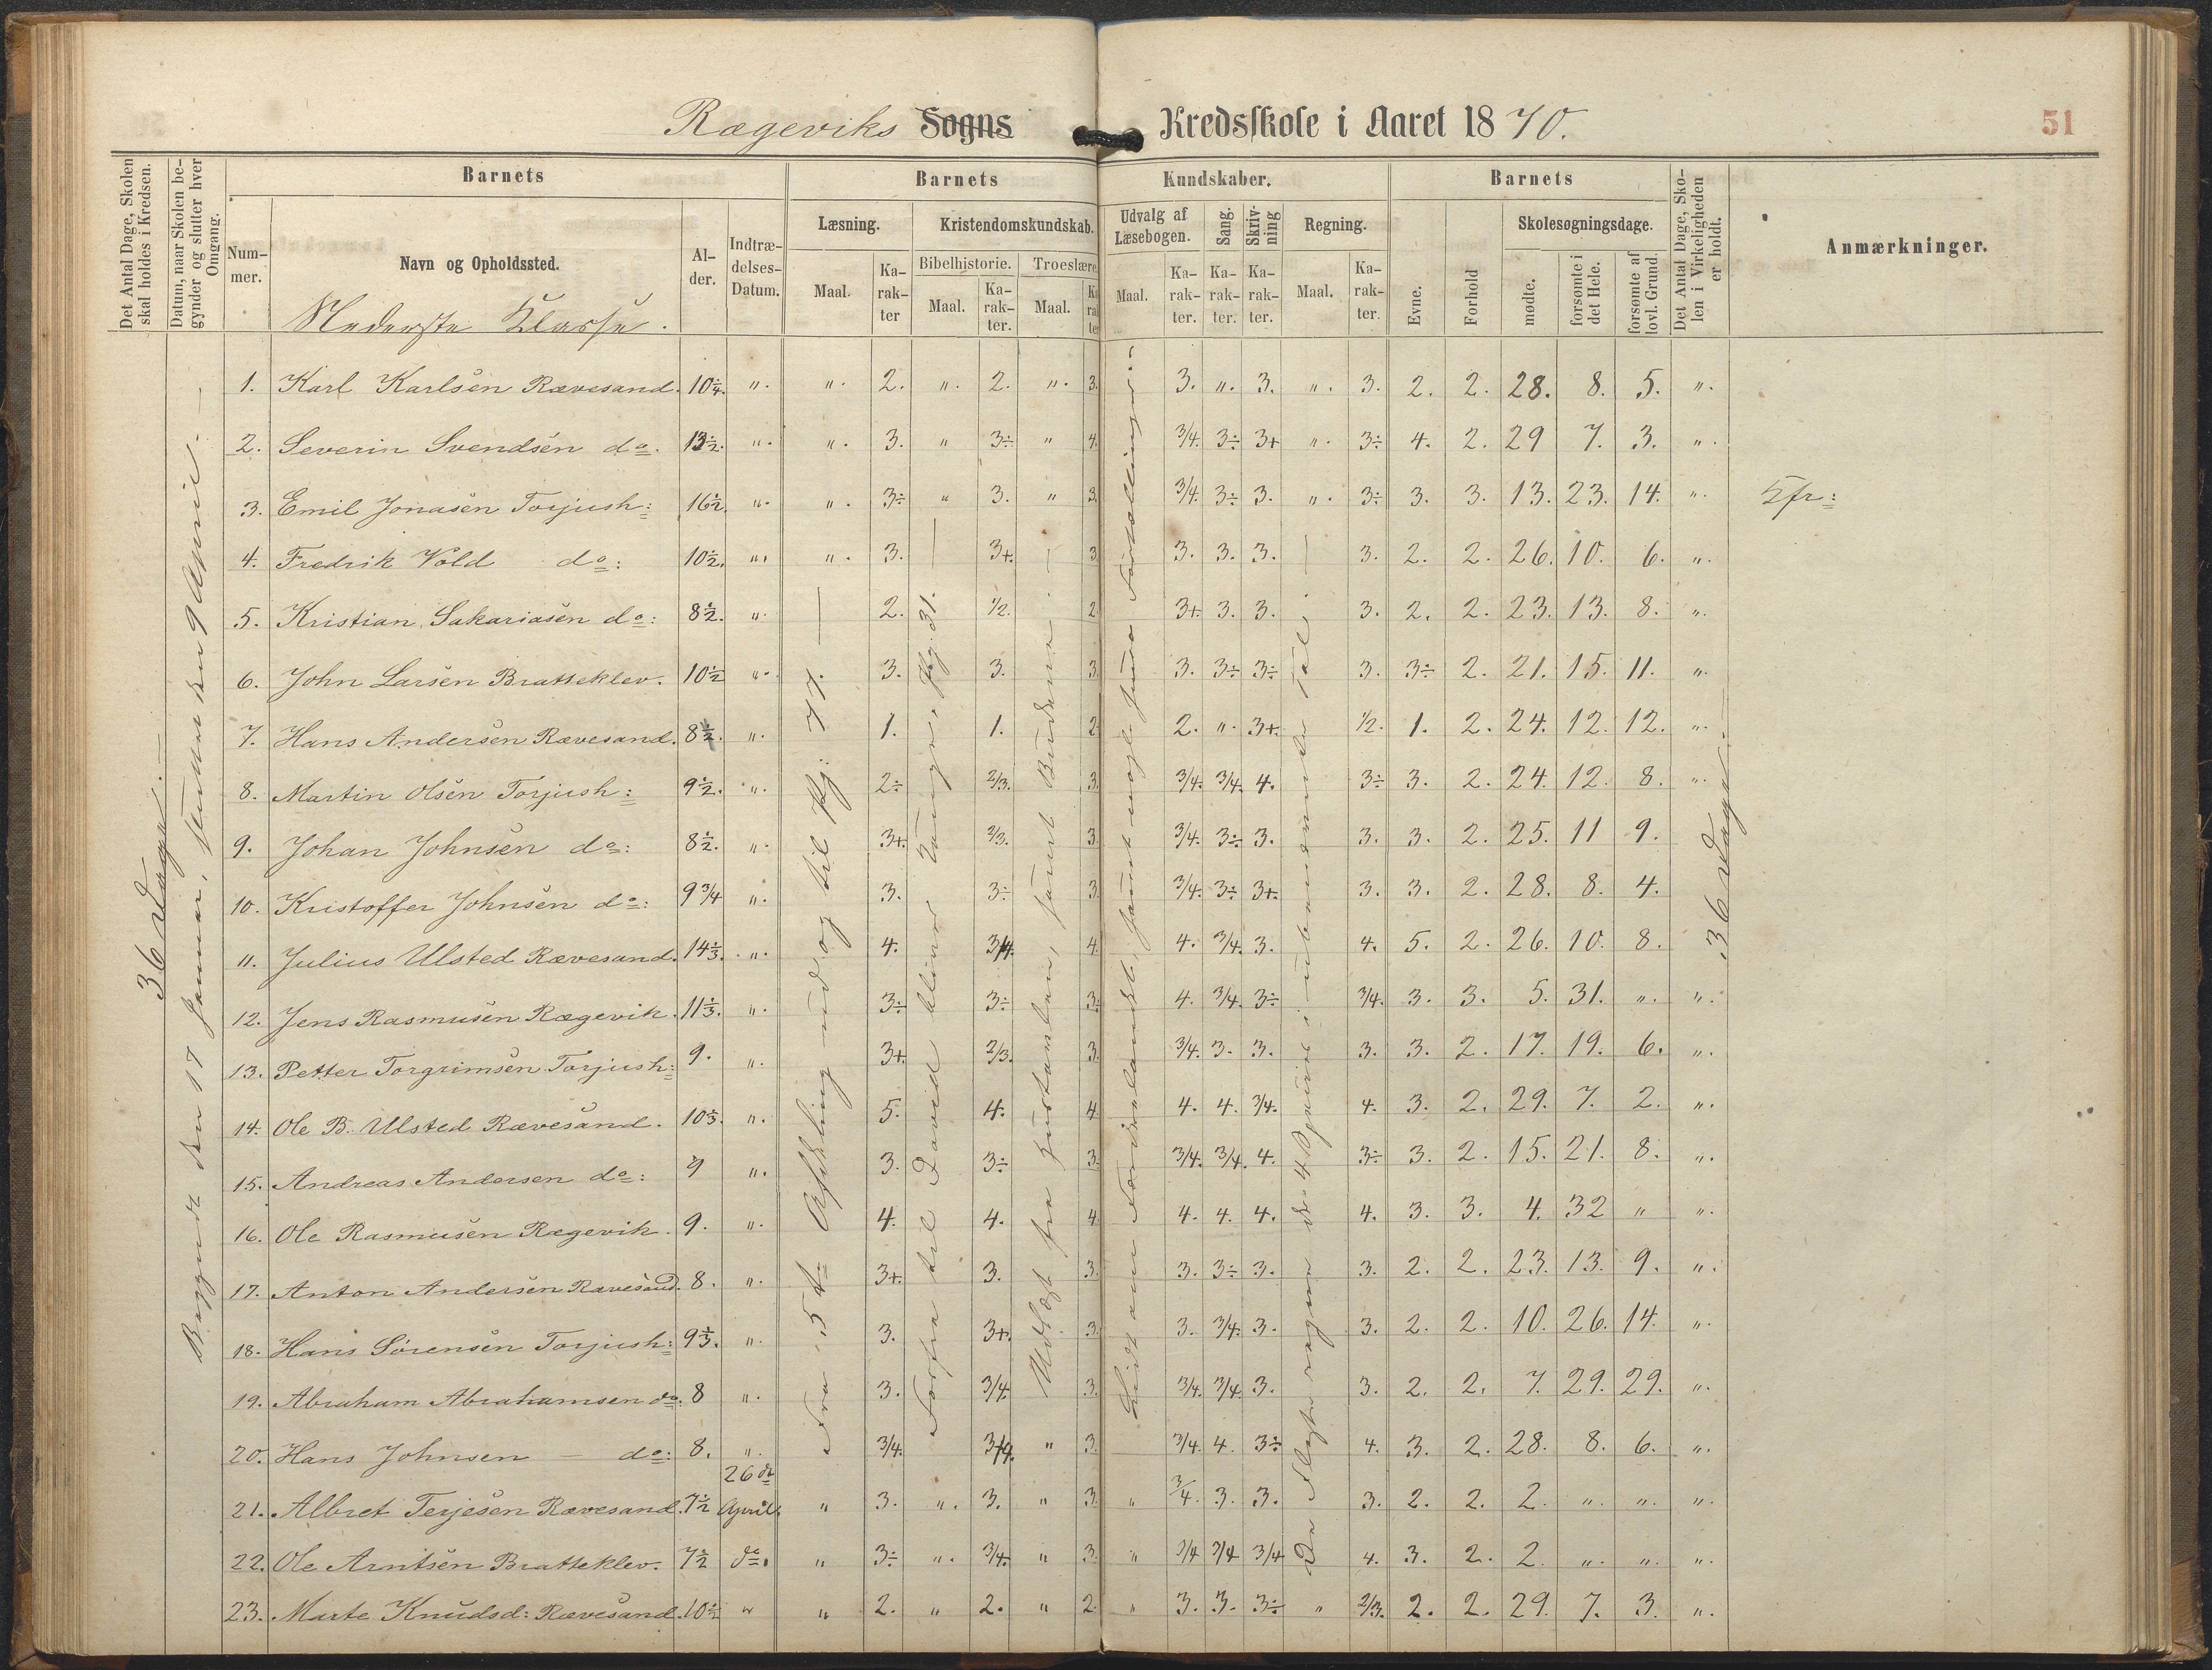 Rægeviks Sogns Kredsskole i Aaret 1870.
51
Det Antal Dage, Skolen skal holdes i Kredsen.
Datum, naar Skolen begynder og slutter hver Omgang.
Barnets
Barnets Kundskaber.
Barnets
Det Antal Dage, Skolen i Virkeligheden er holdt.
Anmærkninger.
Nummer.
Navn og Opholdssted.
Alder.
Indtrædelses-Datum.
Læsning.
Kristendomskundskab.
Udvalg af Læsebogen.
Sang.
Skrivning
Regning.
Evne.
Forhold
Skolesøgningsdage.
Bibelhistorie.
Troeslære.
Maal.
Karakter
Maal.
Karakter.
Maal.
Karakter
Maal.
Karakter.
Karakter.
Karakter.
Maal.
Karakter.
mødte.
forsømte i det Hele.
forsømte af lovl. Grund.
Nederste Klasse.
36 Dage.
Begyndt den 17 Januar, sluttet den 9 April.
Fra 5te Afdeling ud og til Pg: 77.
Forfra til David bliver Konge, Pg. 31.
de 4 Species i ubenævnte Tal.
36 Dage
1. Karl Karlsen Rævesand. 10¼. ". ". 2. ". 2. ". 3. 3. ". 3. ". 3. 2. 2. 28. 8. 5. ".
2. Severin Svendsen do. 13½. ". ". 3. " 3÷ " 4. 3/4. 3÷ 3+ ". 3÷ 4. 2. 29 7. 3. ".
3. Emil Jonasen Torjush: 16½. ". ". 3÷ " 3. " 3. 3/4. 3÷ 3. ". 3÷ 3. 3. 13. 23. 14. ".
4. Fredrik Vold do: 10½. ". ". 3. 3+. 3. 3. 3. 3. 3. 2. 2. 26. 10. 6. ".
5. Kristian Sakariasen do: 8½. ". 2. 1/2. 2. 3+. 3. 3. 3. 2. 2. 23. 13. 8. ".
6. John Larsen Bratteklev. 10½ ". 3. 3. 3. 3. 3÷ 3÷ 3. 3÷ 2. 21. 15. 11. ".
7. Hans Andersen Rævesand. 8½. ". 1. 1. 2. 2. ". 3+. 1/2. 1. 2. 24. 12. 12. ".
8. Martin Olsen Torjush: 9½. ". 2÷ 2/3. 3. 3/4. 3/4. 4. 3÷ 3. 2. 24. 12. 8. ".
9. Johan Johnsen do: 8½. ". 3+. 2/3. 3. 3/4. 3÷ 3. 3. 3. 2. 25. 11 9.
10. Kristoffer Johnsen do: 9¾ ". 3. 3÷ 3. 3/4. 3÷ 3+. 3. 3. 2. 28. 8. 4.
11. Julius Ulsted Rævesand. 14⅓. ". 4. 3/4. 4. 4. 3/4. 3. 4. 5. 2. 26. 10. 8.
12. Jens Rasmusen Rægevik. 11⅓. ". 3÷ 3÷ 3÷ 4. 3/4. 3÷ 3/4. 3. 3. 5. 31. ". ".
13. Petter Torgrimsen Torjush: 9. ". 3+. 2/3. 3. 3/4. 3. 3. 3. 3. 2. 17. 19. 6. ".
14. Ole B. Ulsted Rævesand. 10⅓. ". 5. 4. 4. 4. 4. 3/4. 4. 3. 2. 29. 7. 2. ".
15. Andreas Andersen do: 9 ". 3. 3÷ 3. 3/4. 3/4. 4. 3÷ 3. 2. 15. 21. 8. ".
16. Ole Rasmusen Rægevik. 9. ". 4. 4. 4. 4. 4. 4. 4. 3. 3. 4. 32 " ".
17. Anton Andersen Rævesand. 8. ". 3+. 3. 3. 3. 3÷ 3. 3. 2. 2. 23. 13. 9. ".
18. Hans Sørensen Torjush: 9⅓. ". 3. 3+. 3. 3. 3/4. 3. 3. 2. 2. 10. 26. 14. ".
19. Abraham Abrahamsen do: 8 ". 3. 3/4. 3. 3/4. 3/4. 3. 3. 2. 2. 7. 29. 29. ".
20. Hans Johnsen — do: 8. ". 3/4. 3/4. " 3. 3/4. 4. 3÷ 4. 3. 2. 28. 8. 6. ".
21. Albret Terjesen Rævesand. 7½ 26de April. " 3. ". 3. " 3. " 3/4. 3. 3. 3. 2. 2. 2. ". ". ".
22. Ole Arntsen Bratteklev. 7½ do. " 3÷ ". 3/4. " 3. " 3/4 3/4 3/4 4. 3. 2. 2. ". ". ".
23. Marte Knudsd: Rævesand. 10½ " " 2. " 2. " 2. " 3. 3. 3÷ " 2/3. 2. 2. 29. 7. 3. ".